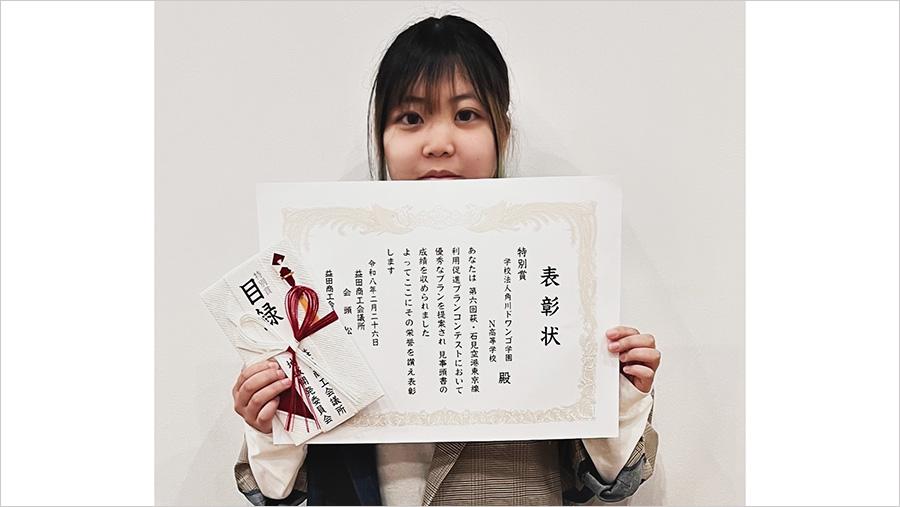 表彰状
特別賞
学校法人角川ドワンゴ学園
N高等学校 殿
あなたは 第六回萩・石見空港東京線
利用促進プランコンテストにおいて
優秀なプランを提案され 見事頭書の
成績を収められました
よってここにその栄誉を讃え表彰
します
令和八年二月二十六日
益田商工会議所
会頭 松
益田商工会
特別賞
目録
商工会議所
開発委員会